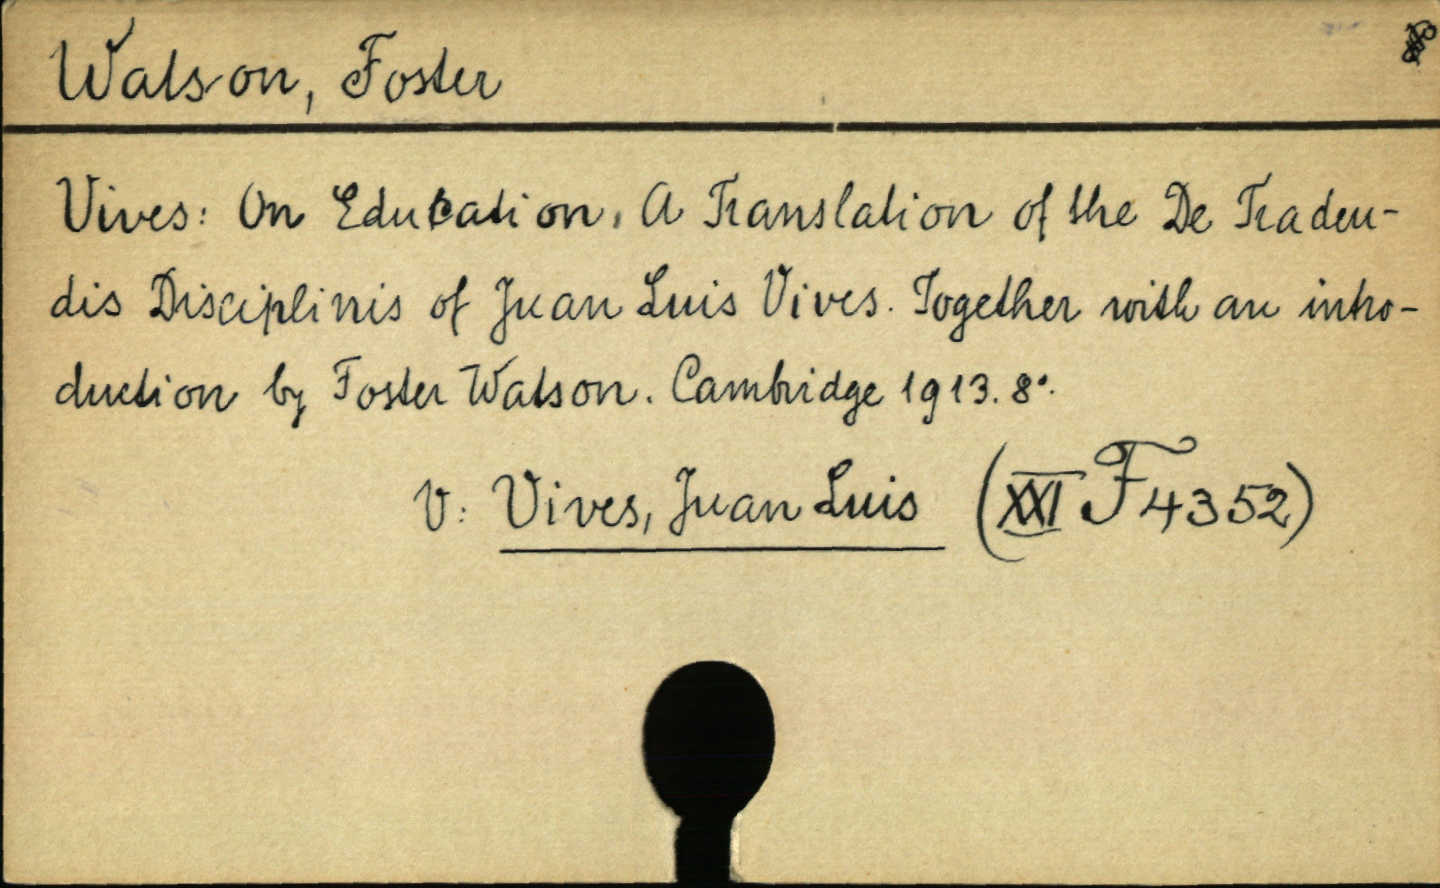 Watson, Foster
Vives: On Education. A Translation of the De Traden-
dis Disciplinis of Juan Luis Vives. Together with an intro-
duction by Foster Watson. Cambridge 1913. 8°.
V: Vives, Juan Luis (XXI F 4352)